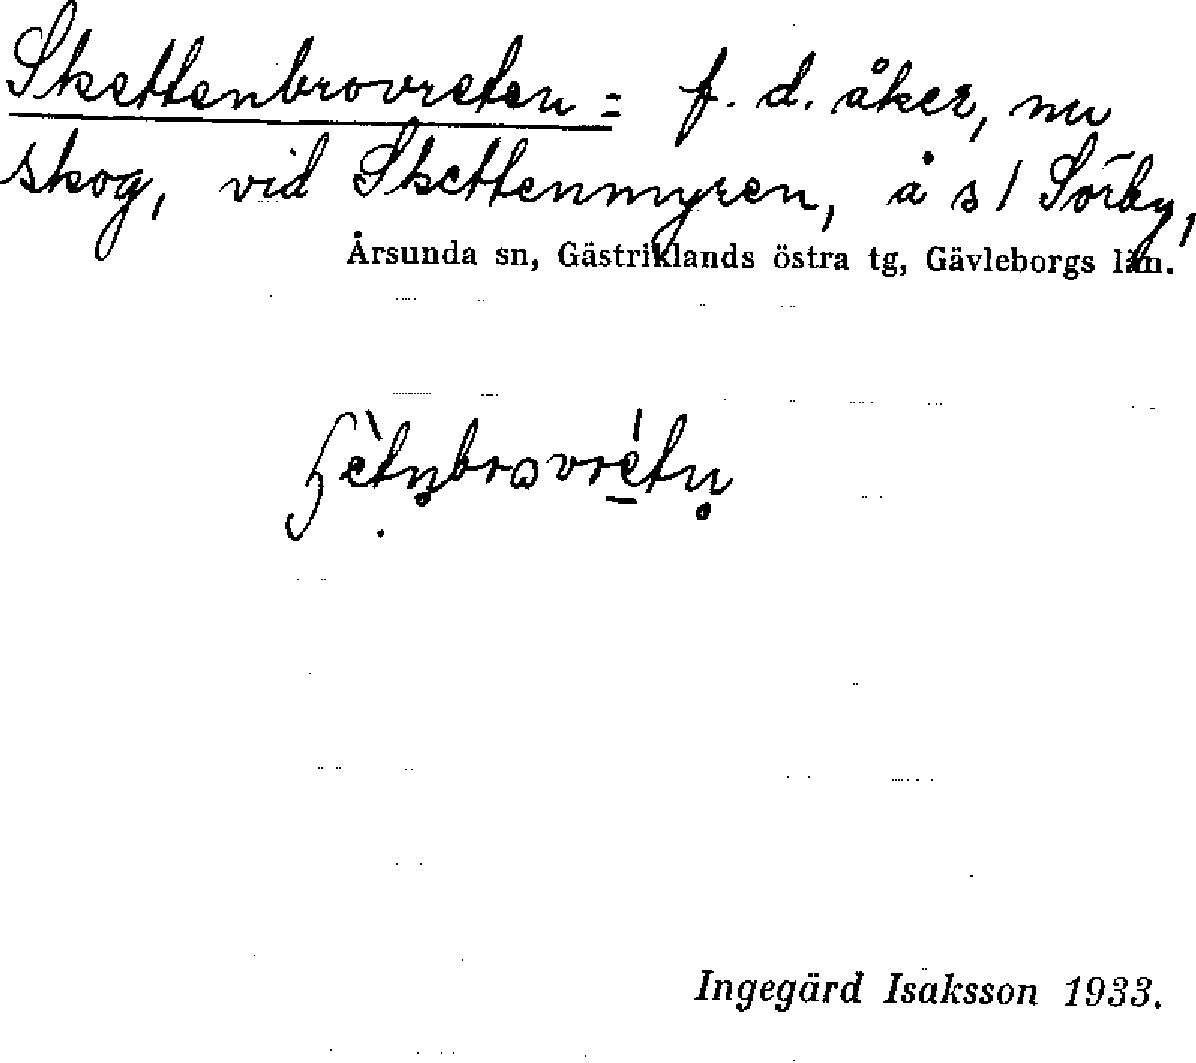 Skettenbrovreten = f. d. åker, nu
skog, vid Skettenmyren, å s/ Sörby,
Årsunda sn, Gästriklands östra tg, Gävleborgs län.
Ingegärd Isaksson 1933.